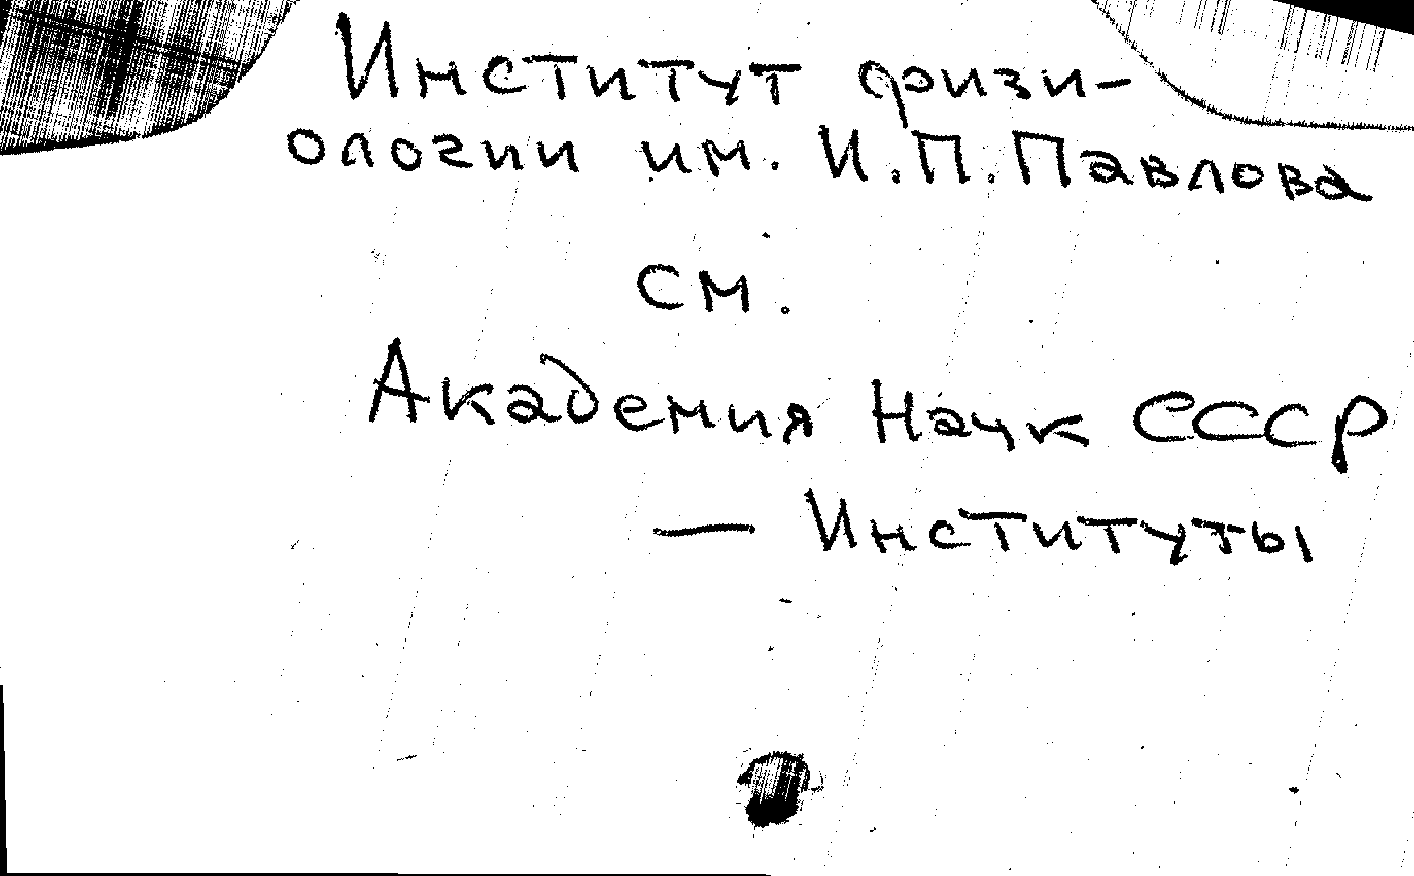 Институт физи-
ологии им. И.П.Павлова
см.
Академия Наук СССР
— Институты